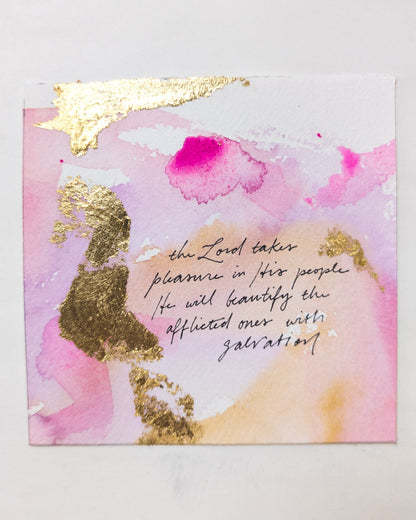 the Lord takes
pleasure in His people
He will beautify the
afflicted ones with
salvation